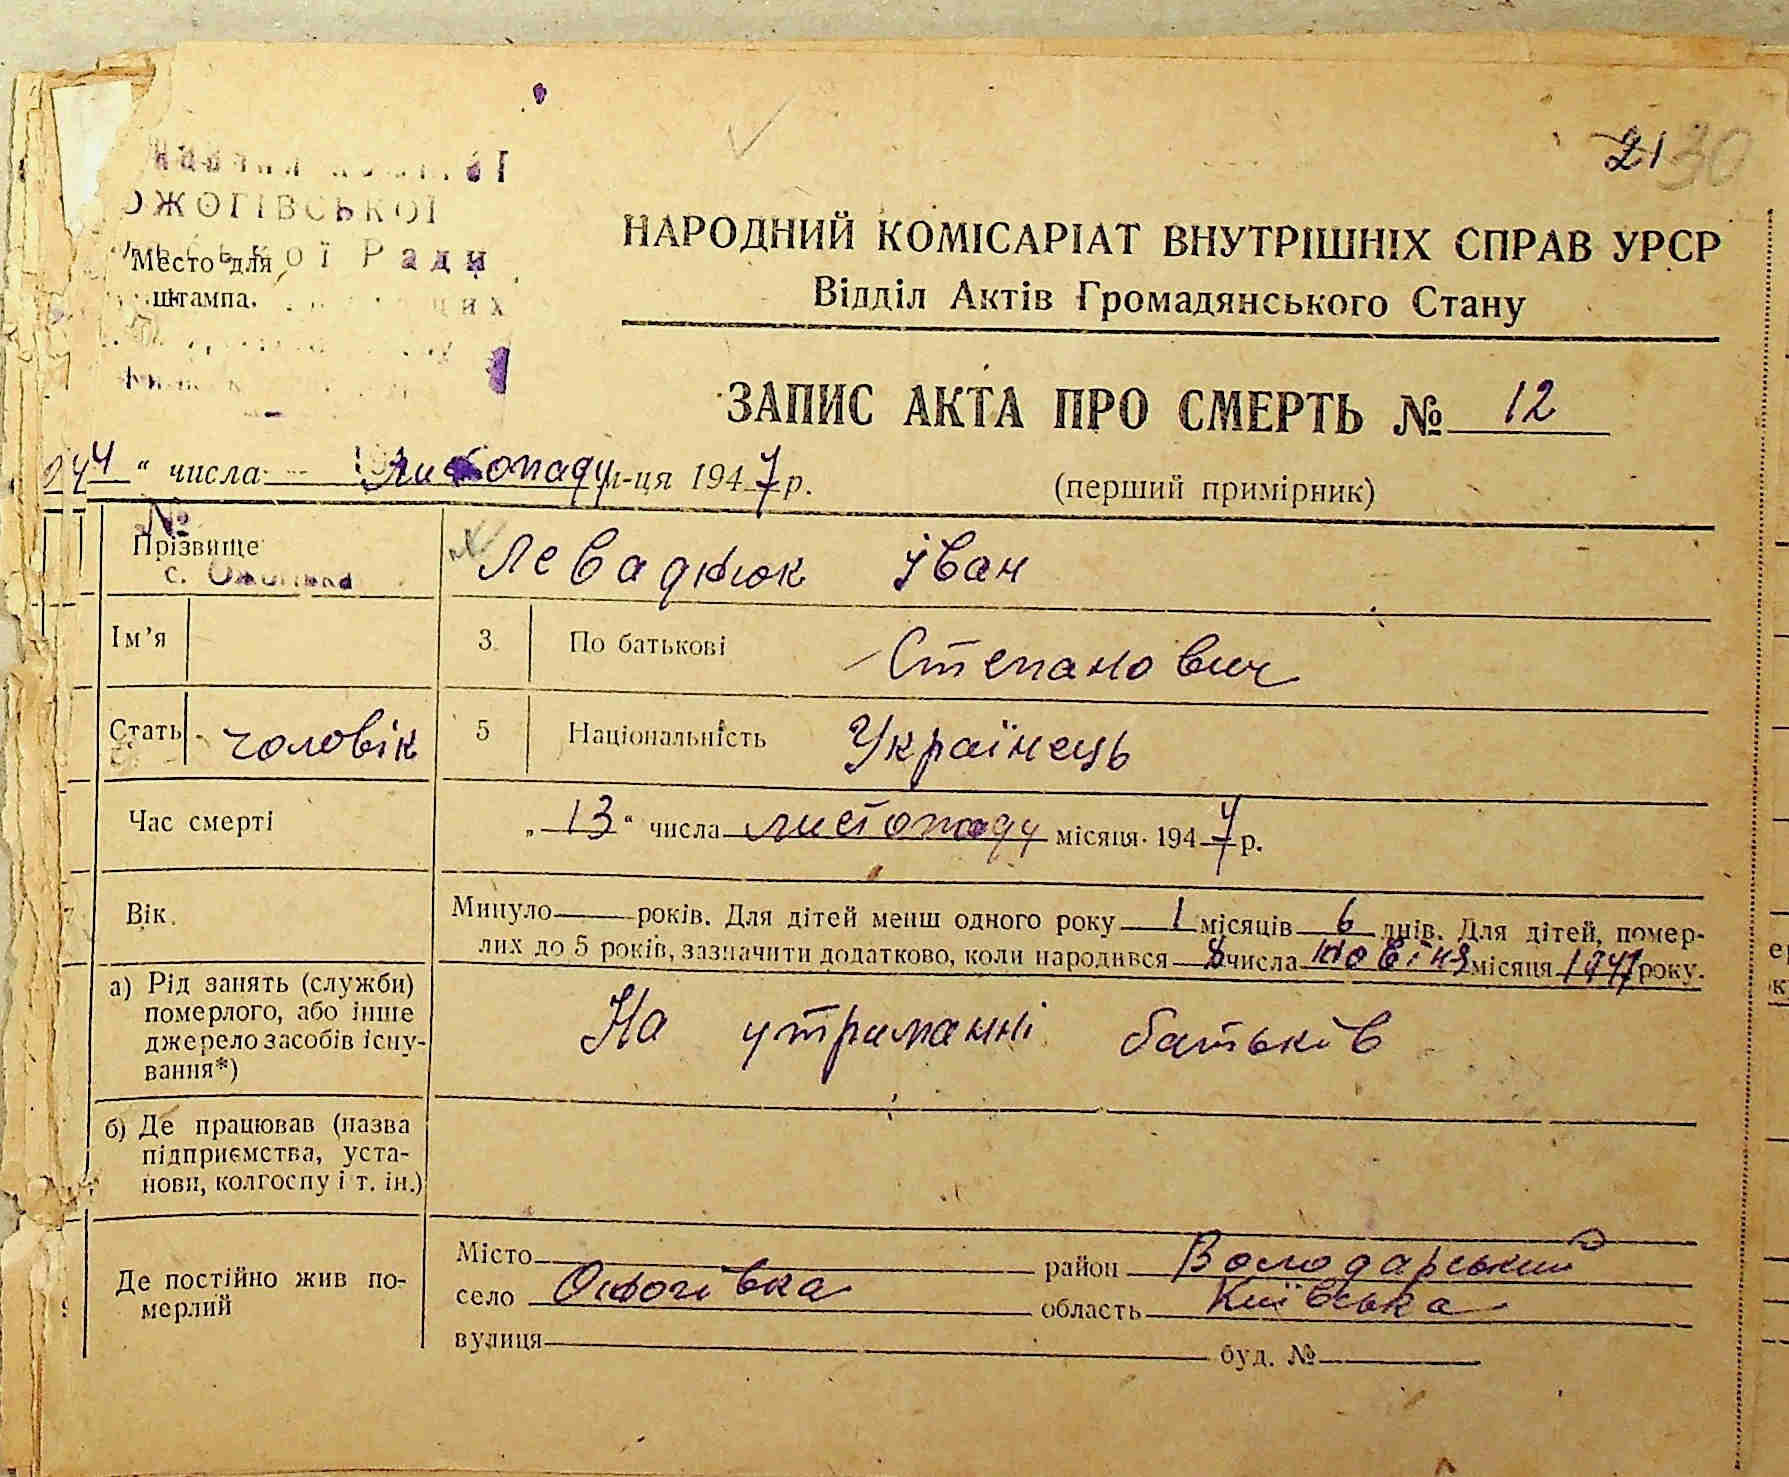 21 30
ОЖОГІВСЬКОЇ
Ради
Место для
штампа.
НАРОДНИЙ КОМІСАРІАТ ВНУТРІШНІХ СПРАВ УРСР
Відділ Актів Громадянського Стану
ЗАПИС АКТА ПРО СМЕРТЬ № 12
" числа листопаду м-ця 1947 р.
(перший примірник)
№
Прізвище Левадюк Іван
с. Ожогівка
Ім'я 3 По батькові Степанович
Стать чоловік 5 Національність Українець
Час смерті „13“ числа листопаду місяця 1947 р.
Вік. Минуло років. Для дітей менш одного року 1 місяців 6 днів. Для дітей, помер-
лих до 5 років, зазначити додатково, коли народився числа місяця 1947 року.
а) Рід занять (служби)
померлого, або інше
джерело засобів існу-
вання*)
На утриманні батьків
б) Де працював (назва
підприємства, уста-
нови, колгоспу і т. ін.)
Де постійно жив по-
мерлий
Місто район Володарський
село Ожогівка область Київська
вулиця буд. №